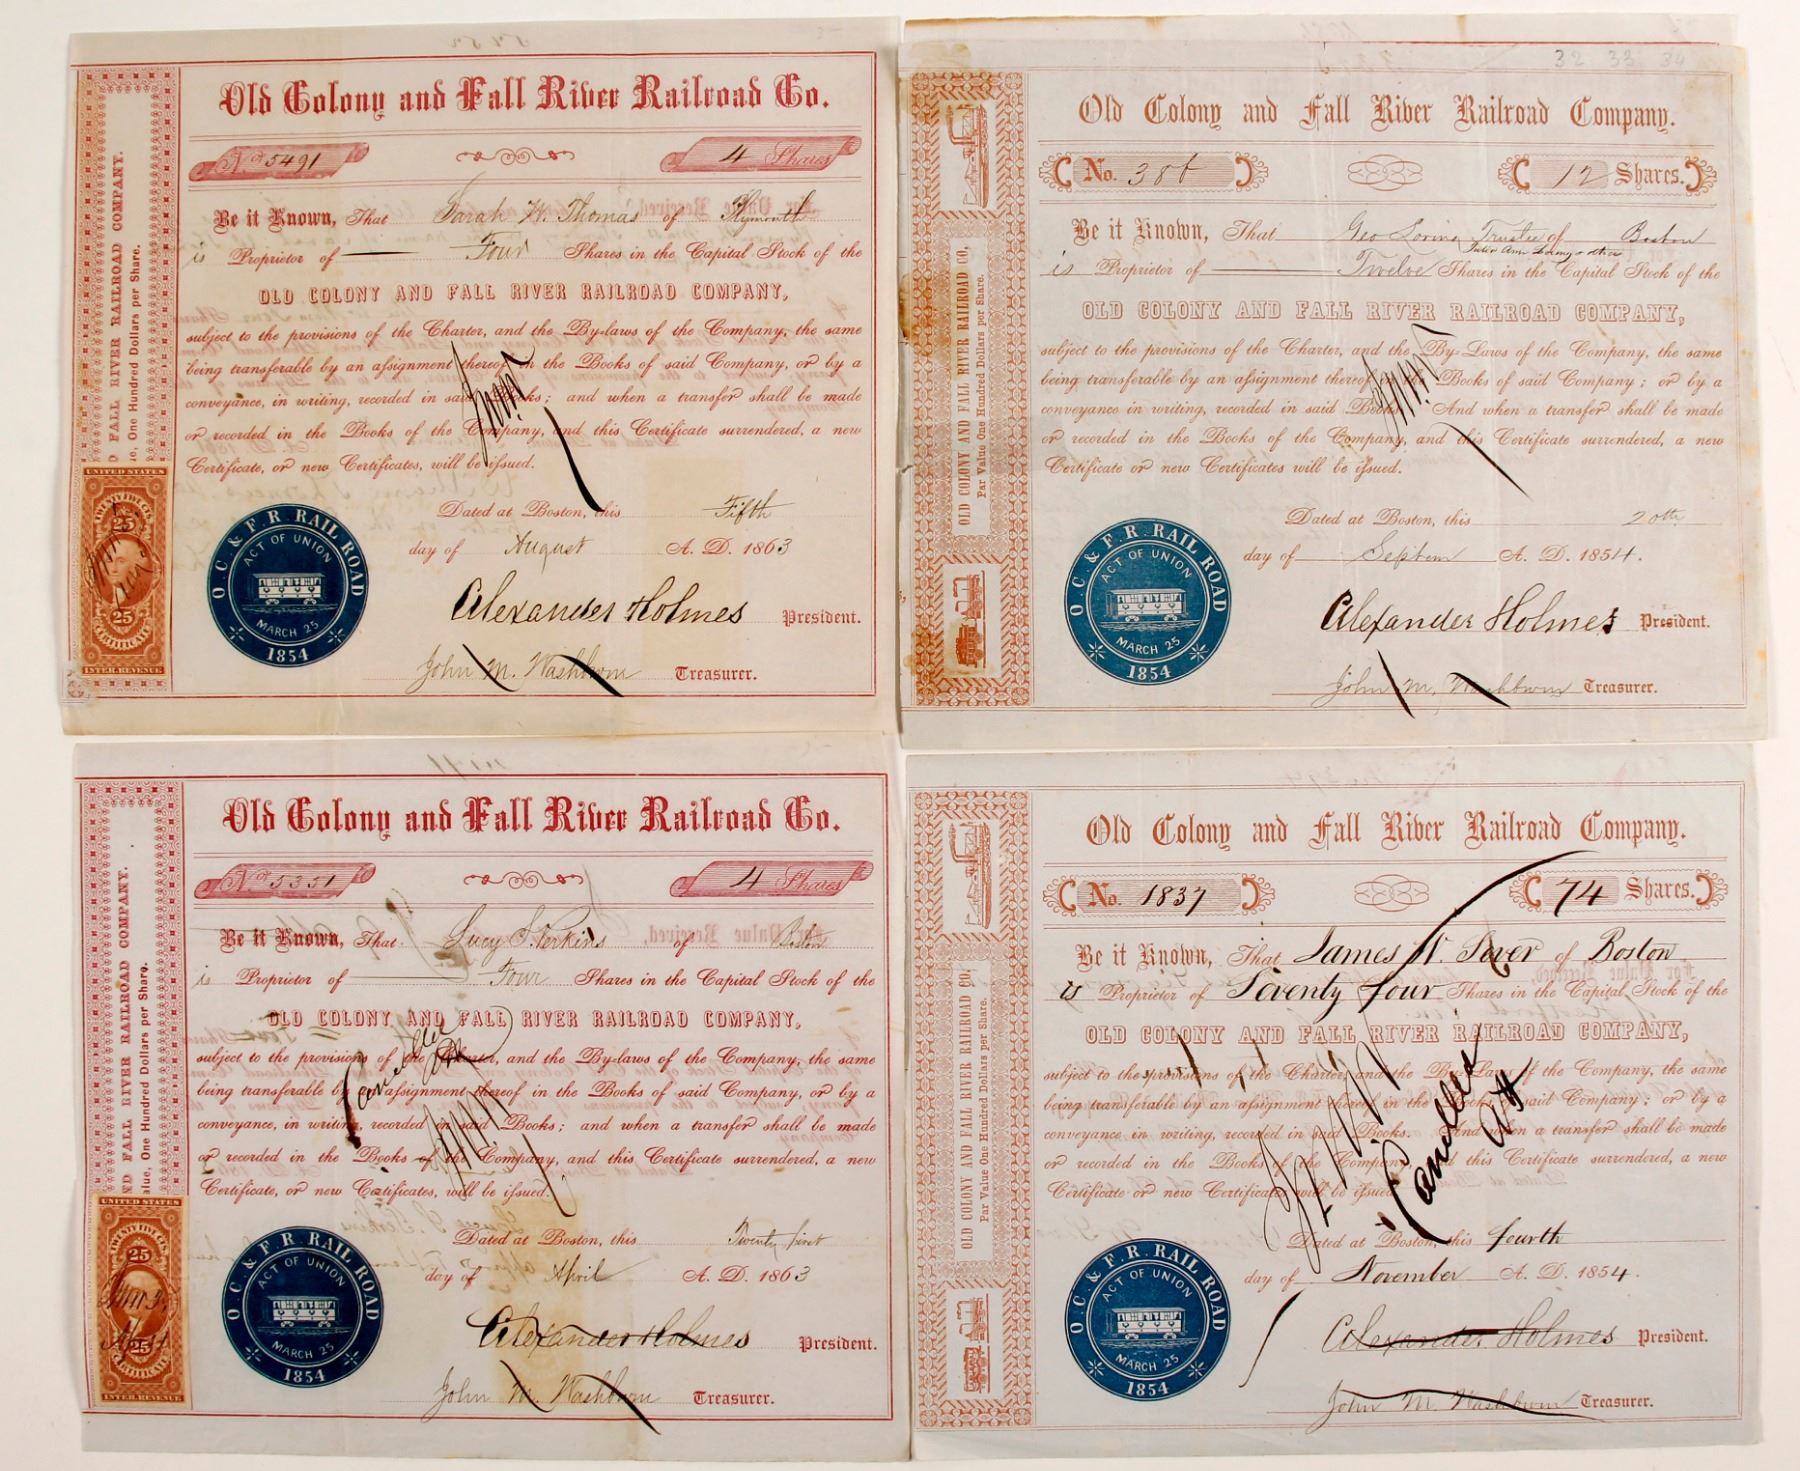 Old Colony and Fall River Railroad Co.
No 5491
4 Shares
Be it Known, That Sarah W. Thomas of Plymouth
is Proprietor of Four Shares in the Capital Stock of the
OLD COLONY AND FALL RIVER RAILROAD COMPANY,
subject to the provisions of the Charter, and the By-laws of the Company, the same
being transferable by an assignment thereof in the Books of said Company, or by a
conveyance, in writing, recorded in said Books; and when a transfer shall be made
or recorded in the Books of the Company, and this Certificate surrendered, a new
Certificate, or new Certificates, will be issued.
Dated at Boston, this Fifth
day of August A. D. 1863
Alexander Holmes President.
John M. Washburn Treasurer.
O. C. & F. R. RAIL ROAD
ACT OF UNION
MARCH 25
1854
D FALL RIVER RAILROAD COMPANY.
ue, One Hundred Dollars per Share.
UNITED STATES
TWENTY FIVE CTS.
25
25
CERTIFICATE
INTER. REVENUE
32 33 34
Old Colony and Fall River Railroad Company.
No. 386
12 Shares.
Be it Known, That Geo Loring Trustee of Boston
is Proprietor of Twelve Shares in the Capital Stock of the
OLD COLONY AND FALL RIVER RAILROAD COMPANY,
subject to the provisions of the Charter, and the By-Laws of the Company, the same
being transferable by an assignment thereof in the Books of said Company; or by a
conveyance in writing, recorded in said Books. And when a transfer shall be made
or recorded in the Books of the Company, and this Certificate surrendered, a new
Certificate or new Certificates will be issued.
Dated at Boston, this 20th
day of Septem A. D. 1854.
Alexander Holmes President.
John M. Washburn Treasurer.
O. C. & F. R. RAIL ROAD
ACT OF UNION
MARCH 25
1854
OLD COLONY AND FALL RIVER RAILROAD CO.
Par Value One Hundred Dollars per Share.
Old Colony and Fall River Railroad Co.
No 5351
4 Shares
Be it Known, That Lucy S. Perkins of Boston
is Proprietor of Four Shares in the Capital Stock of the
OLD COLONY AND FALL RIVER RAILROAD COMPANY,
subject to the provisions of the Charter, and the By-laws of the Company, the same
being transferable by an assignment thereof in the Books of said Company, or by a
conveyance, in writing, recorded in said Books; and when a transfer shall be made
or recorded in the Books of the Company, and this Certificate surrendered, a new
Certificate, or new Certificates, will be issued.
Cancelled
AH
Dated at Boston, this Twenty first
day of April A. D. 1863
Alexander Holmes President.
John M. Washburn Treasurer.
O. C. & F. R. RAIL ROAD
ACT OF UNION
MARCH 25
1854
ND FALL RIVER RAILROAD COMPANY.
alue, One Hundred Dollars per Share.
UNITED STATES
TWENTY FIVE CTS.
25
25
CERTIFICATE
INTER. REVENUE
Old Colony and Fall River Railroad Company.
No. 1837
74 Shares.
Be it Known, That James W. Sever of Boston
is Proprietor of Seventy four Shares in the Capital Stock of the
OLD COLONY AND FALL RIVER RAILROAD COMPANY,
subject to the provisions of the Charter, and the By-Laws of the Company, the same
being transferable by an assignment thereof in the Books of said Company; or by a
conveyance in writing, recorded in said Books. And when a transfer shall be made
or recorded in the Books of the Company, and this Certificate surrendered, a new
Certificate or new Certificates will be issued.
Cancelled
AH
Dated at Boston, this fourth
day of November A. D. 1854.
Alexander Holmes President.
John M. Washburn Treasurer.
O. C. & F. R. RAIL ROAD
ACT OF UNION
MARCH 25
1854
OLD COLONY AND FALL RIVER RAILROAD CO.
Par Value One Hundred Dollars per Share.